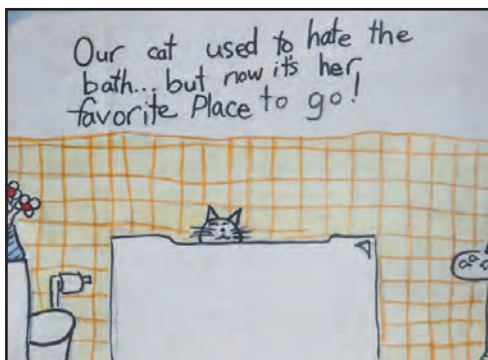 Our cat used to hate the
bath... but now it's her
favorite Place to go!